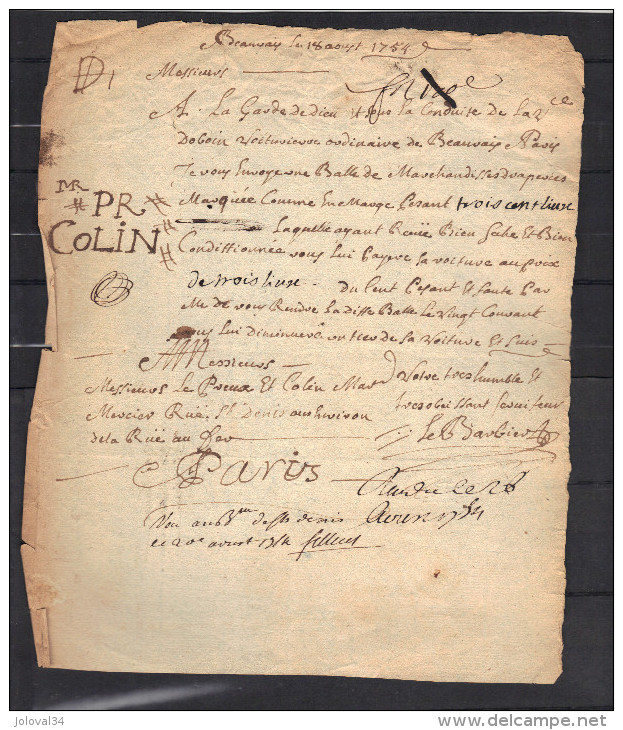 Beauvais le 18 aoust 1754
D 1
Messieurs
A La Garde de dieu et sous la Conduite de La Vce
voituriere ordinaire de Beauvais a Paris
Je vous Envoye une Balle de Marchandisses drapperies
Marquée Comme En Marge Pesant trois cent livre
MR
PR
COLIN
Laquelle ayant Reçüe Bien Seche Et Bien
Condittionnée vous lui Payere la voiture au prix
de trois livre Du Cent Pesant Et faute Par
de vous Rendre La ditte Balle Le vingt Courant
vous lui diminueré un tier de La Voiture Et Suis
Messieurs
Messieurs Le Preux Et Colin Mard
votre tres humble Et
Mercier Rüe St Denis
tres obeissant serviteur
de la Rüe au
Le Barbier
a Paris
Vu au St denis
ce 20e aoust 1754
joloval34
www.delcampe.net